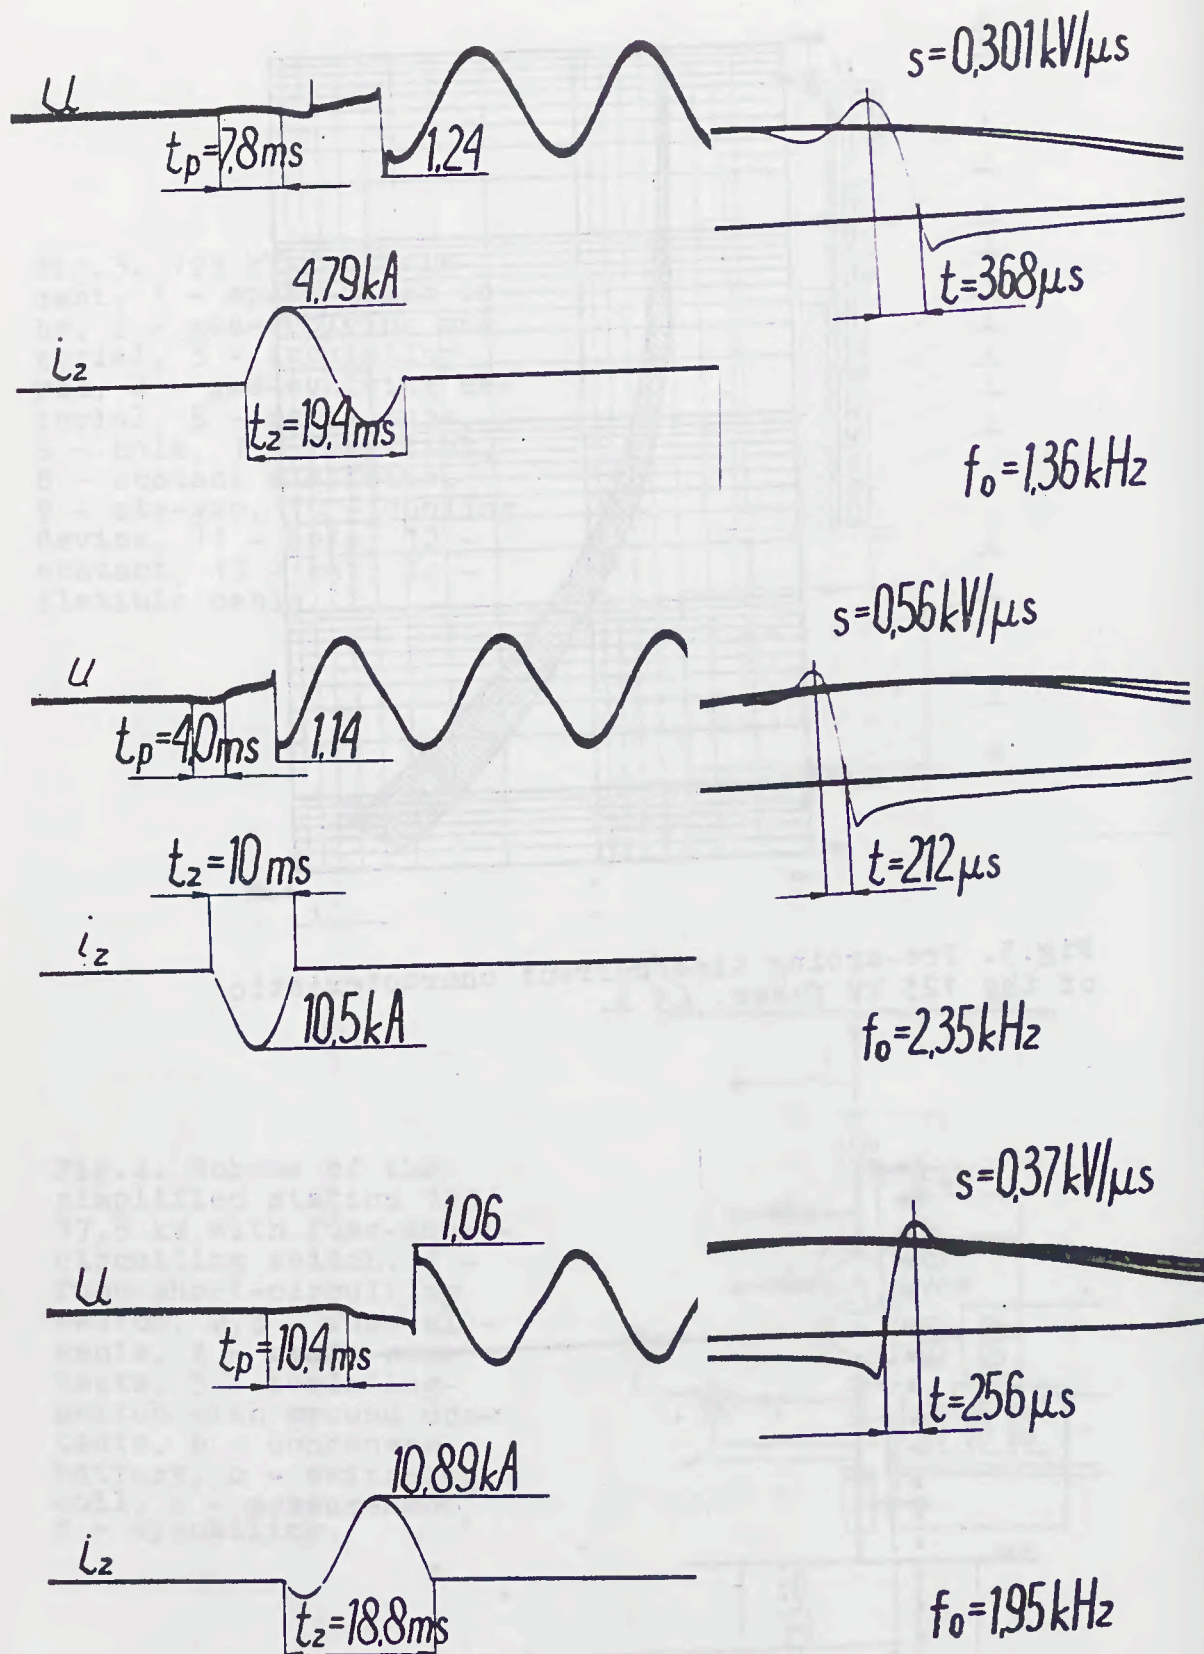 s=0,301kV/μs
u
tp=7,8ms
1,24
t=368μs
4,79kA
iz
tz=19,4ms
f₀=1,36kHz
s=0,56kV/μs
u
tp=4,0ms
1,14
tz=10ms
t=212μs
iz
10,5kA
f₀=2,35kHz
s=0,37kV/μs
1,06
u
tp=10,4ms
t=256μs
10,89kA
iz
tz=18,8ms
f₀=1,95kHz